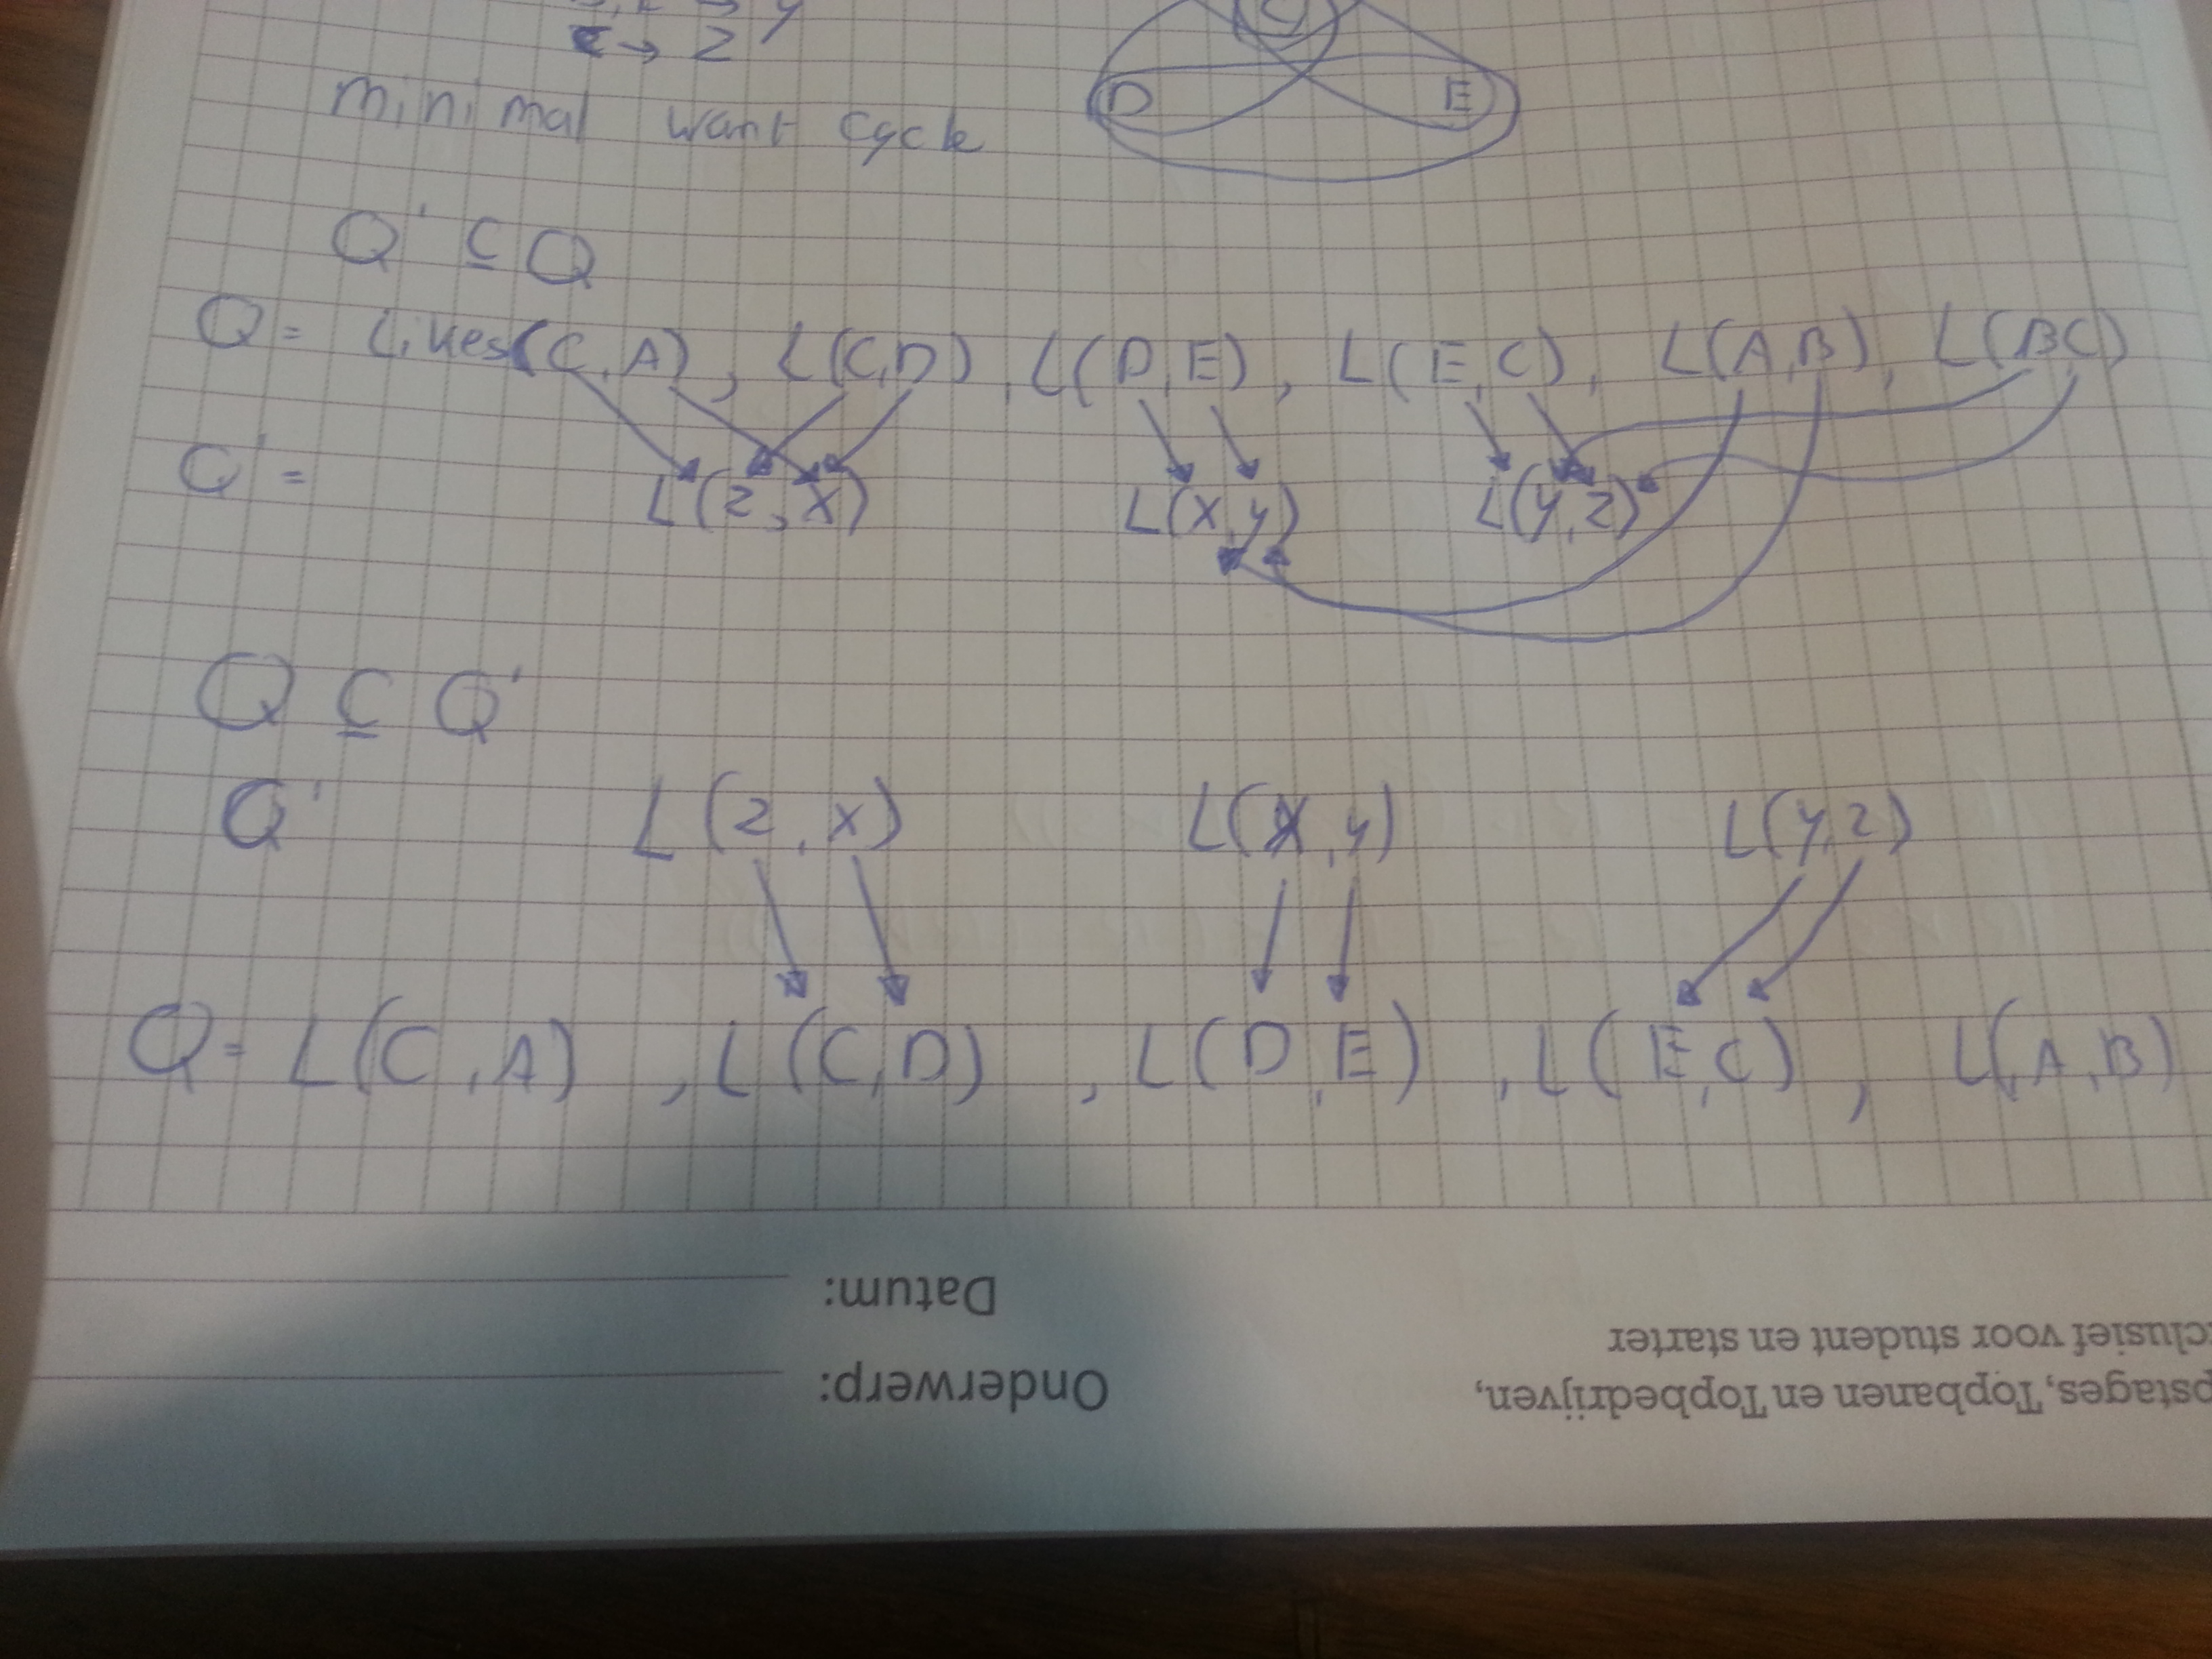 → y
C → z
minimal want cycle
C
D E
Q' ⊆ Q
Q = Likes(C,A), L(C,D), L(D,E), L(E,C), L(A,B), L(BC)
Q' = L(z,x) L(x,y) L(y,z)
Q ⊆ Q'
Q' L(z,x) L(x,y) L(y,z)
Q= L(C,A), L(C,D), L(D,E), L(E,C), L(A,B)
Datum:
Onderwerp:
pstages, Topbanen en Topbedrijven,
clusief voor student en starter